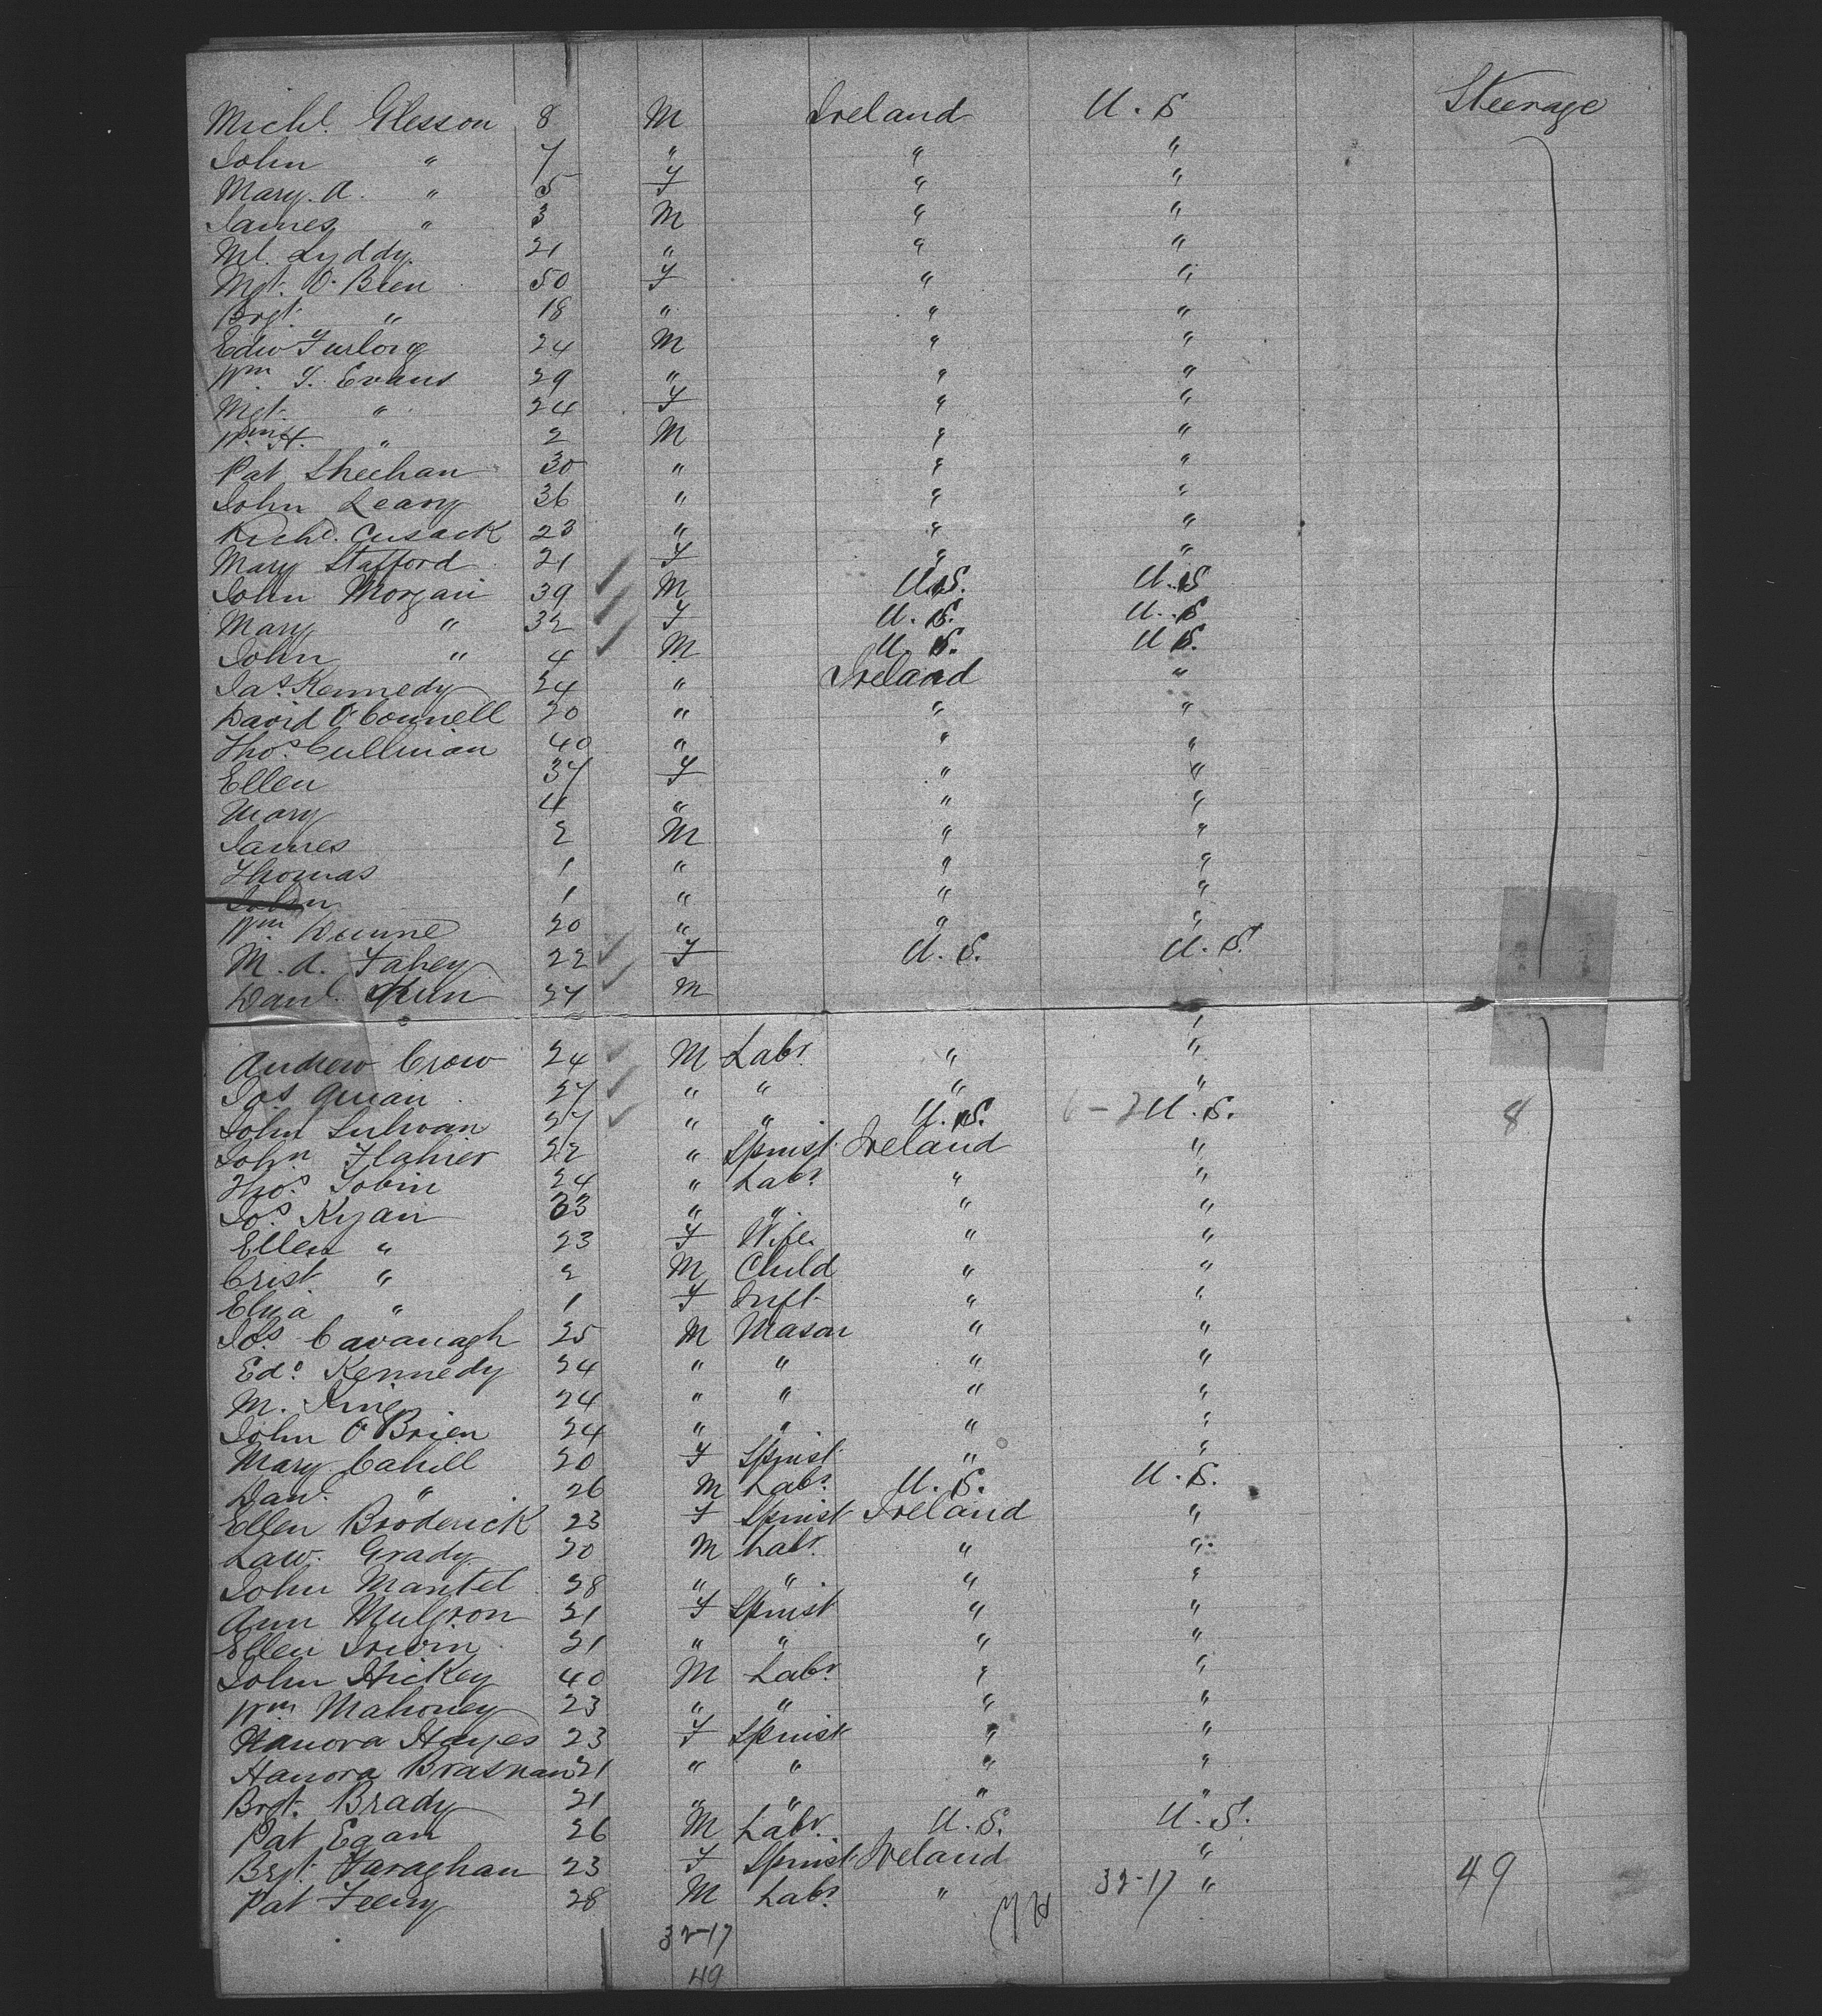 Michl. Glesson 8 M Ireland U.S Steerage
John " 7 " " "
Mary. A. " 5 F " "
James " 3 M " "
Ml. Lyddy. 21 " " "
Mgt. O'Brien 50 F " "
Brgt. " 18 " " "
Edw Furlong 24 M " "
Wm. T. Evans 29 " " "
Mgt. " 24 F " "
Wm H. " 2 M " "
Pat Sheehan 30 " " "
John Leary 36 " " "
Richd. Cusack 23 " " "
Mary Stafford 21 F " "
John Morgan 39 M U.S. U.S
Mary " 32 F U.S. U.S
John " 4 M U.S. U S.
Jas. Kennedy 24 " Ireland "
David O'Connell 20 " " "
Thos. Cullinan 40 " " "
Ellen 37 F " "
Mary 4 " " "
James 2 M " "
Thomas 1 " " "
John 1 " " "
Wm. Dunne 20 " " "
M. A. Fahey 22 F U.S. U.S.
Danl. 27 M
Andrew Crow 24 M Labr. " "
Jas Quian 27 " " " "
John Sulivan 27 " " U.S. 6-2 U.S. 8
John Flahier 22 " Spinst Ireland "
Thos. Tobin 24 " Labr. " "
Jos. Ryan 33 " " " "
Ellen " 23 F Wife " "
Crist " 2 M Child " "
Eliza " 1 F Inft. " "
Jos. Cavanagh 25 M Mason " "
Edd. Kennedy 24 " " " "
M. King 24 " " " "
John O'Brien 24 " " " "
Mary Cahill 20 F Spinst " "
Danl. " 26 M Labr. U.S. U.S.
Ellen Broderick 23 F Spinst Ireland "
Law. Grady 20 M Labr. " "
John Mantel 28 " " " "
Ann Mulgron 21 F Spinst " "
Ellen Irwin 21 " " " "
John Hickey 40 M Labr. " "
Wm Mahoney 23 " " " "
Hanora Hayes 23 F Spinst " "
Hanora Brasnan 21 " " " "
Brgt. Brady 21 " " " "
Pat Egan 26 M Labr. U.S. U.S.
Brgt. Faraghan 23 F Spinst Ireland "
Pat Feeny 28 M Labr. " 32-17 " 49
32-17
49